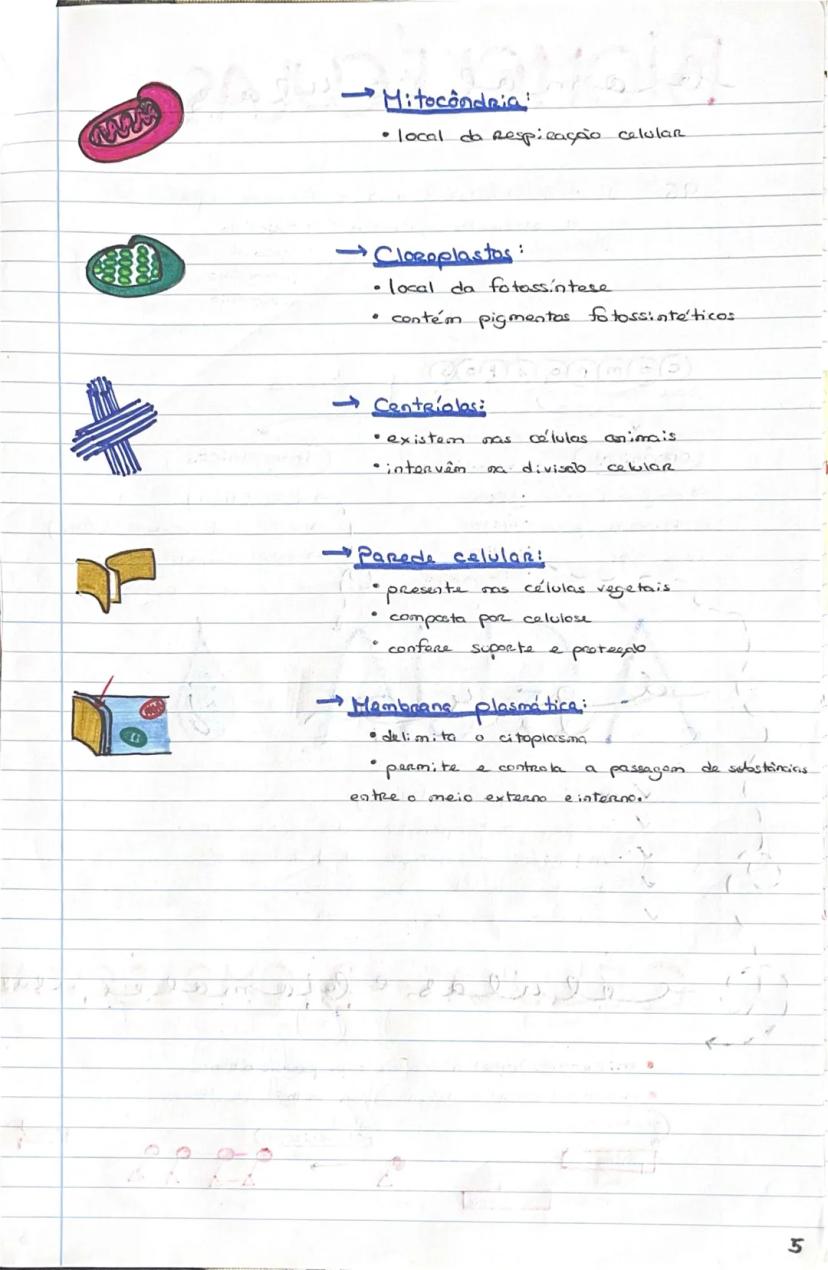 → Mitocôndria:
• local da respiração celular
→ Cloroplastos:
• local da fotossíntese
• contém pigmentos fotossintéticos
→ Centríolos:
• existem nas células animais
• intervêm na divisão celular
→ Parede celular:
• presente nas células vegetais
• composta por celulose
• confere suporte e proteção
→ Membrana plasmática:
• delimita o citoplasma
• permite e controla a passagem de substâncias
entre o meio externo e interno.
5